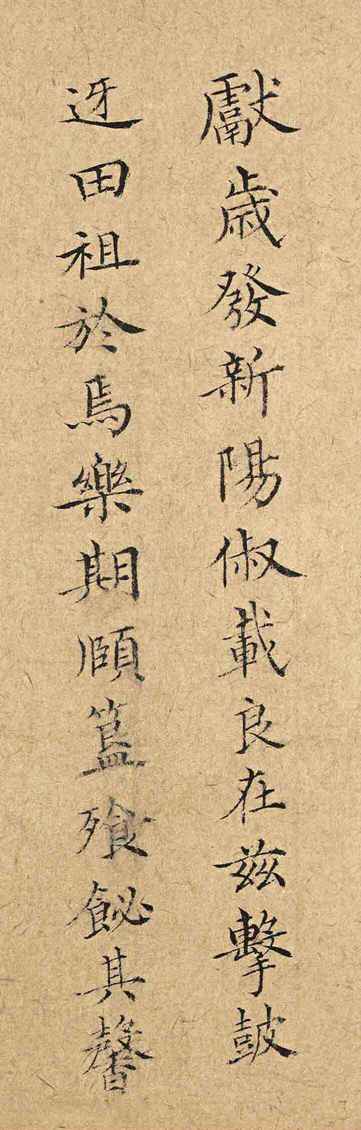 獻歲發新陽俶載良在茲擊鼓
迓田祖於焉樂期頤簋飱飶其馨